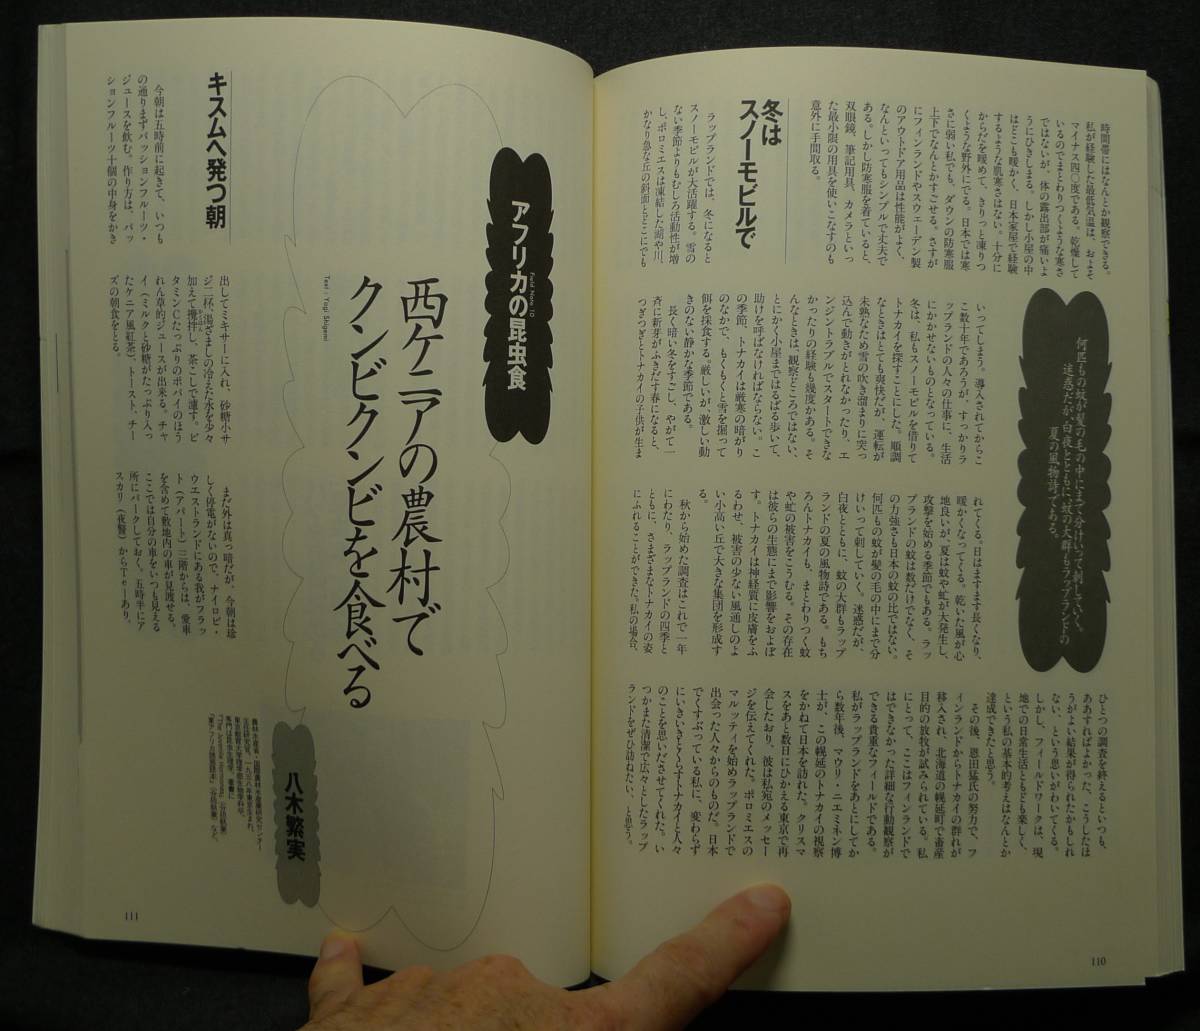 時間帯にはなんとか観察できる。
私が経験した最低気温は、およそ
マイナス四〇度である。乾燥して
いるのでまとわりつくような寒さ
ではないが、体の露出部が痛いよ
うにひきしまる。しかし小屋の中
はどこも暖かく、日本家屋で経験
するような肌寒さはない。十分に
からだを暖めて、きりっと凍りつ
くような野外にでる。日本では寒
さに弱い私でも、ダウンの防寒服
上下でなんとかすごせる。さすが
にフィンランドやスウェーデン製
のアウトドア用品は性能がよく、
なんといってもシンプルで丈夫で
ある。しかし防寒服を着ていると、
双眼鏡、筆記用具、カメラといっ
た最小限の用具を使いこなすのも
意外に手間取る。
冬は
スノーモビルで
ラップランドでは、冬になると
スノーモビルが大活躍する。雪の
ない季節よりもむしろ活動性が増
し、ポロミエスは凍結した湖や川、
かなり急な丘の斜面とどこにでも
何匹もの蚊が髪の毛の中にまで分けいって刺していく。
迷惑だが、白夜とともに、蚊の大群もラップランドの
夏の風物詩である。
いってしまう。導入されてからこ
こ数十年であろうが、すっかりラ
ップランドの人々の仕事に、生活
にかかせないものとなっている。
冬は、私もスノーモビルを借りて
トナカイを探すことにした。順調
なときはとても爽快だが、運転が
未熟なため雪の吹き溜まりに突っ
込んで動きがとれなかったり、エ
ンジントラブルでスタートできな
かったりの経験も幾度かある。そ
んなときは、観察どころではない、
とにかく小屋まではるばる歩いて、
助けを呼ばなければならない。こ
の季節、トナカイは厳寒の暗がり
のなかで、もくもくと雪を掘って
餌を採食する。厳しいが、激しい動
きのない静かな季節である。
長く暗い冬をすごし、やがて一
斉に新芽がふきだす春になると、
つぎつぎとトナカイの子供が生ま
れてくる。日はますます長くなり、
暖かくなってくる。乾いた風が心
地良いが、夏は蚊や虻が大発生し、
攻撃を始める季節でもある。ラッ
プランドの蚊は数だけでなく、そ
の力強さも日本の蚊の比ではない。
何匹もの蚊が髪の毛の中にまで分
けいって刺していく。迷惑だが、
白夜とともに、蚊の大群もラップ
ランドの夏の風物詩である。もち
ろんトナカイも、まとわりつく蚊
や虻の被害をこうむる。その存在
は彼らの生態にまで影響をおよぼ
す。トナカイは神経質に皮膚をふ
るわせ、被害の少ない風通しのよ
い小高い丘で大きな集団を形成す
る。
秋から始めた調査はこれで一年
にわたり、ラップランドの四季と
ともに、さまざまなトナカイの姿
にふれることができた。私の場合、
ひとつの調査を終えるといつも、
ああすればよかった、こうしたほ
うがよい結果が得られたかもしれ
ない、という思いがわいてくる。
しかし、フィールドワークは、現
地での日常生活ともども楽しく、
という私の基本的考えはなんとか
達成できたと思う。
その後、恩田猛氏の努力で、フ
ィンランドからトナカイの群れが
移入され、北海道の幌延町で畜産
目的の放牧が試みられている。私
にとって、ここはフィンランドで
はできなかった詳細な行動観察が
できる貴重なフィールドである。
私がラップランドをあとにしてか
ら数年後、マウリ・ニエミネン博
士が、この幌延のトナカイの視察
をかねて日本を訪れた。クリスマ
スをあと数日にひかえる東京で再
会したおり、彼は私宛のメッセー
ジを伝えてくれた。ポロミエスの
マルッティを始めラップランドで
出会った人々からのものだ。日本
でくすぶっている私に、変わらず
にいきいきとくらすトナカイと人々
のことを思いださせてくれた。い
つかまた清潔で広々としたラップ
ランドをぜひ訪ねたい、と思う。
110
アフリカの昆虫食
Field Note 10
西ケニアの農村で
クンビクンビを食べる
Text: Yagi Shigemi
八木繁実
キスムへ発つ朝
今朝は五時前に起きて、いつも
の通りまずパッションフルーツ・
ジュースを飲む。作り方は、パッ
ションフルーツ十個の中身をかき
出してミキサーに入れ、砂糖小サ
ジ二杯、湯ざましの冷えた水を少々
加えて攪拌し、茶こしで漉す。ビ
タミンCたっぷりのポパイのほう
れん草的ジュースが出来る。チャ
イ(ミルクと砂糖がたっぷり入っ
たケニア風紅茶)、トースト、チー
ズの朝食をとる。
まだ外は真っ暗だが、今朝は珍
しく停電がないので、ナイロビ・
ウエストランドにある我がフラッ
ト(アパート)三階からは、愛車
を含めて敷地内の車が見渡せる。
ここでは自分の車をいつも見える
所にパークしておく。五時半にア
スカリ(夜警)からTelあり、
111